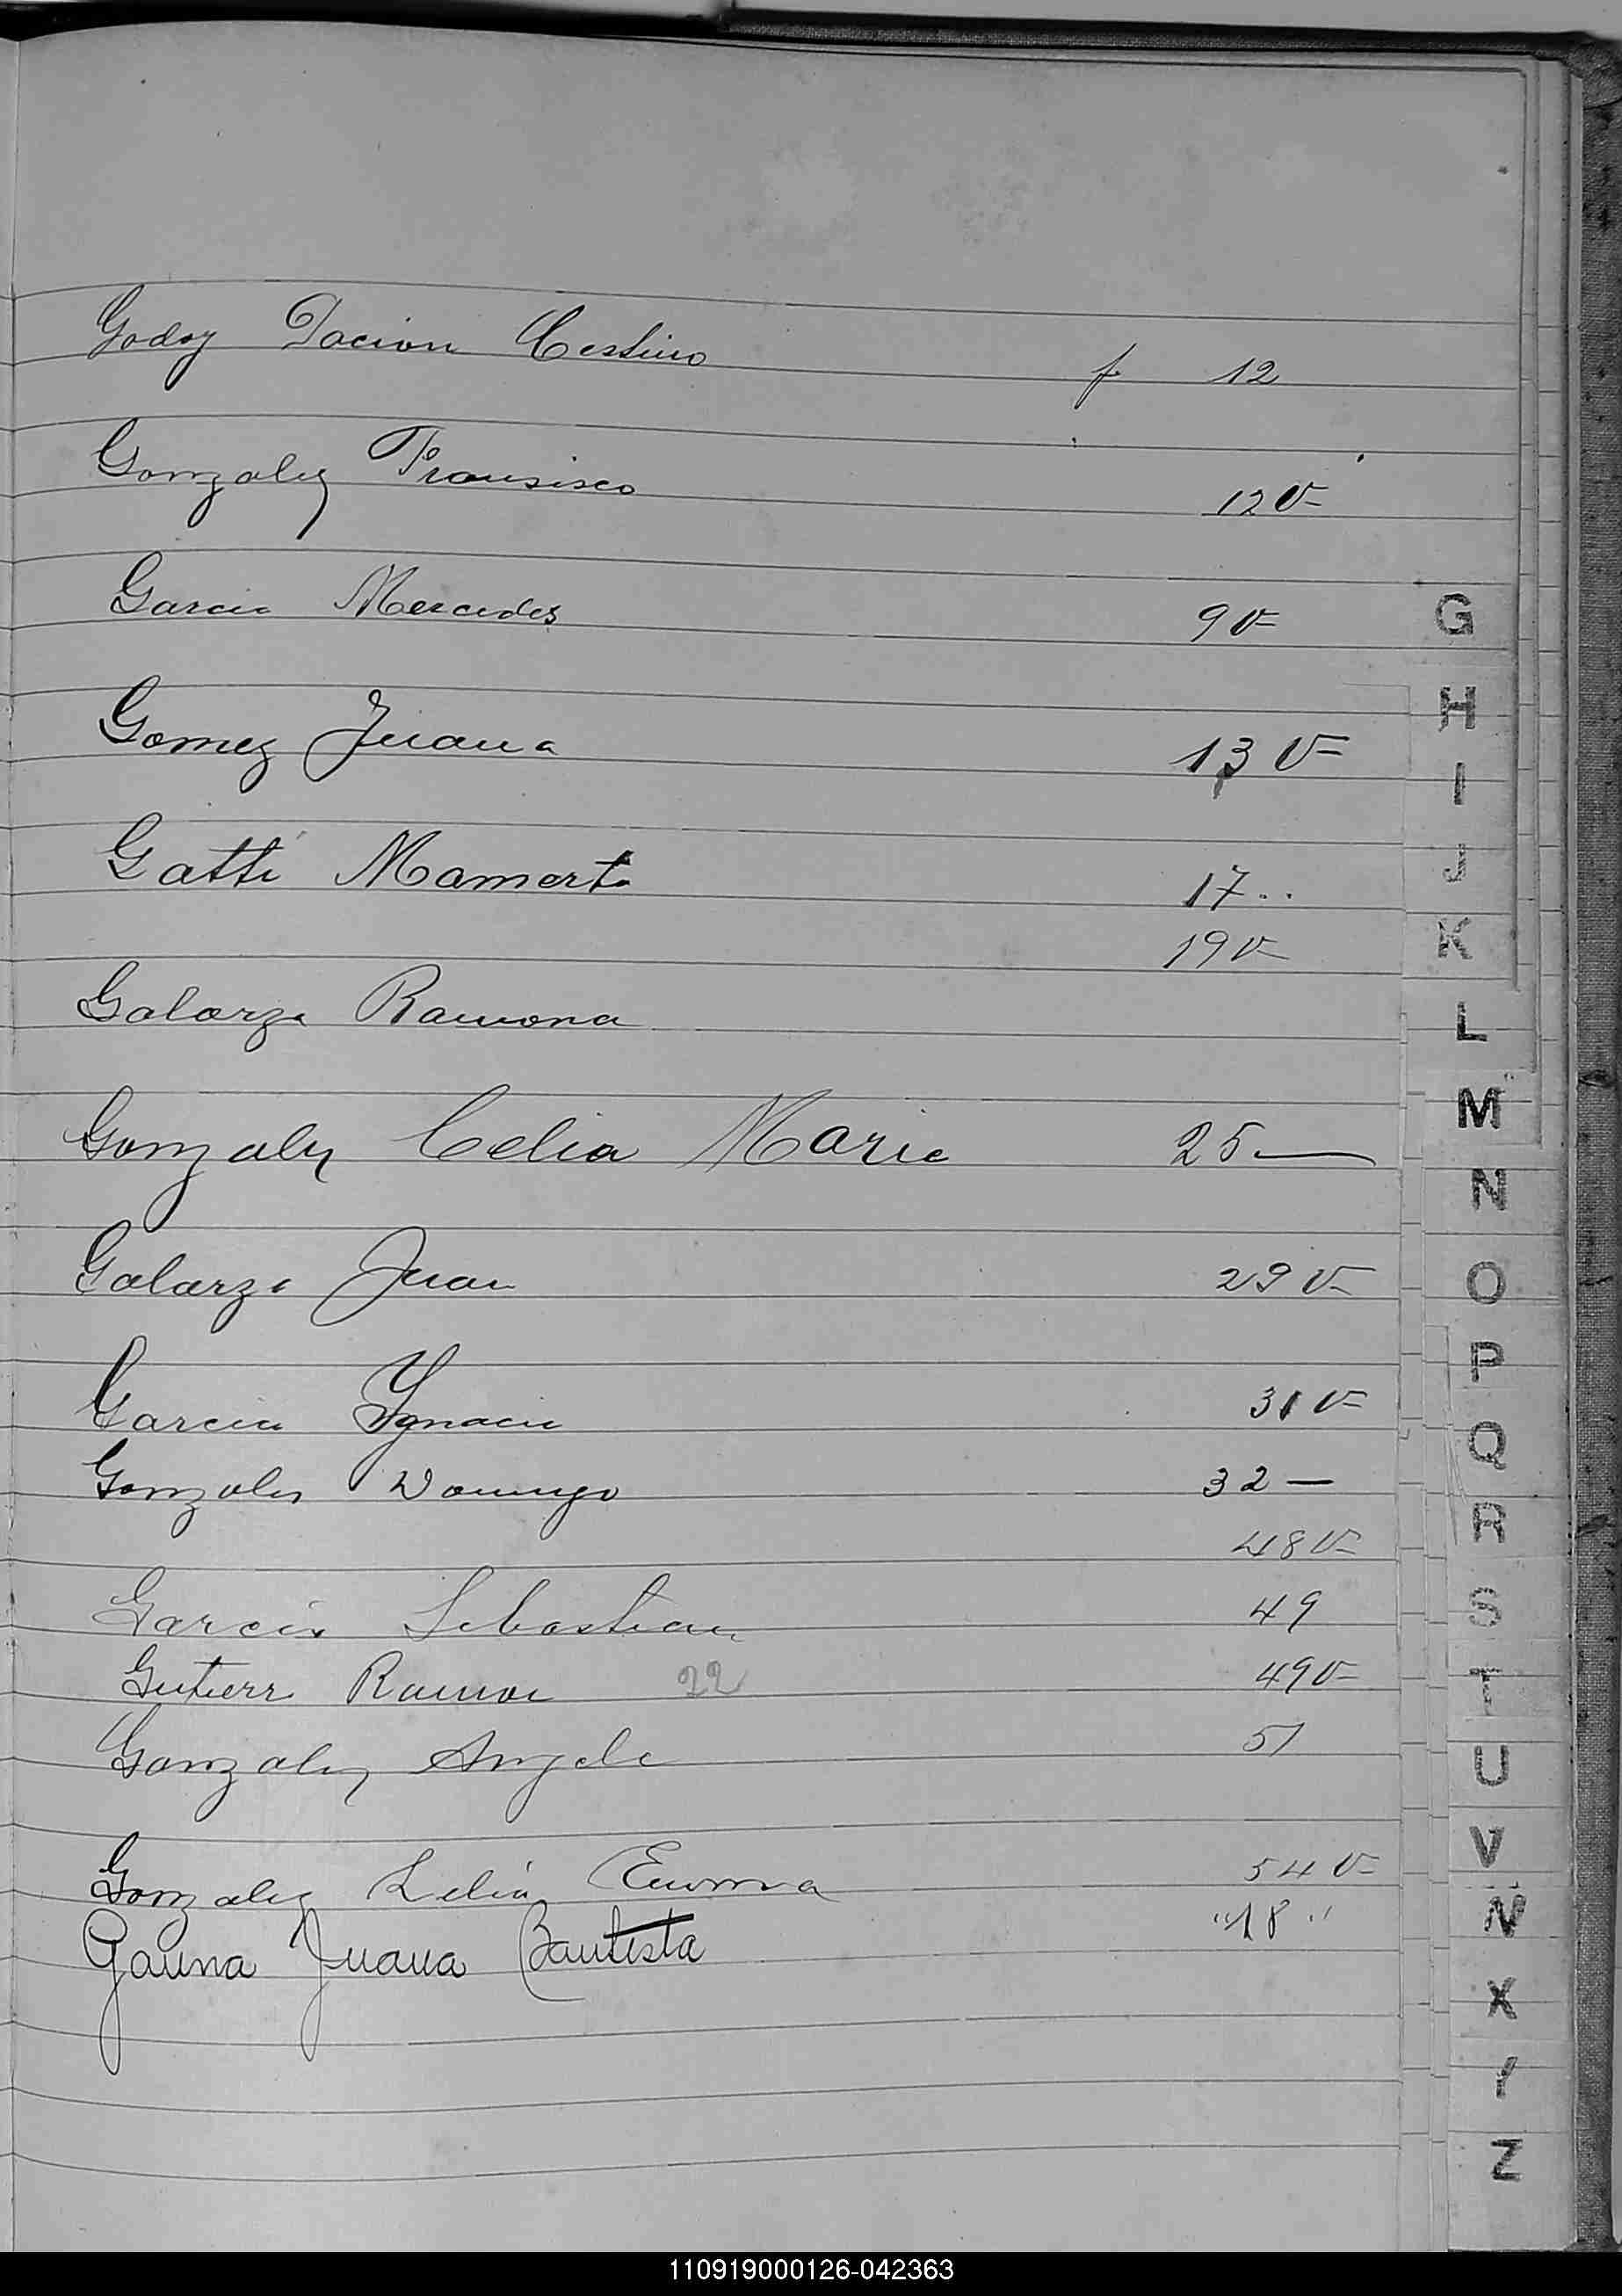 Godoy Pacion Cestino f 12
Gonzalez Fransisco 12 v
Garcia Mercedes 9 v
G
Gomez Juana 13 v
H
I
Gatti Mamerto 17..
J
19 v
K
Galarza Ramona
L
M
Gonzalez Celia Maria 25 —
N
Galarza Juan 29 v
O
P
Garcia Ygnacio 31 v
Q
Gonzales Domingo 32 —
R
48 v
Garcia Sebastian 49
S
Gutierr Ramon 22 49 v
T
Gonzalez Angela 51
U
V
Gonzalez Lelia Emma 54 v
Gauna Juana Bautista "18"
X
Y
Z
110919000126-042363